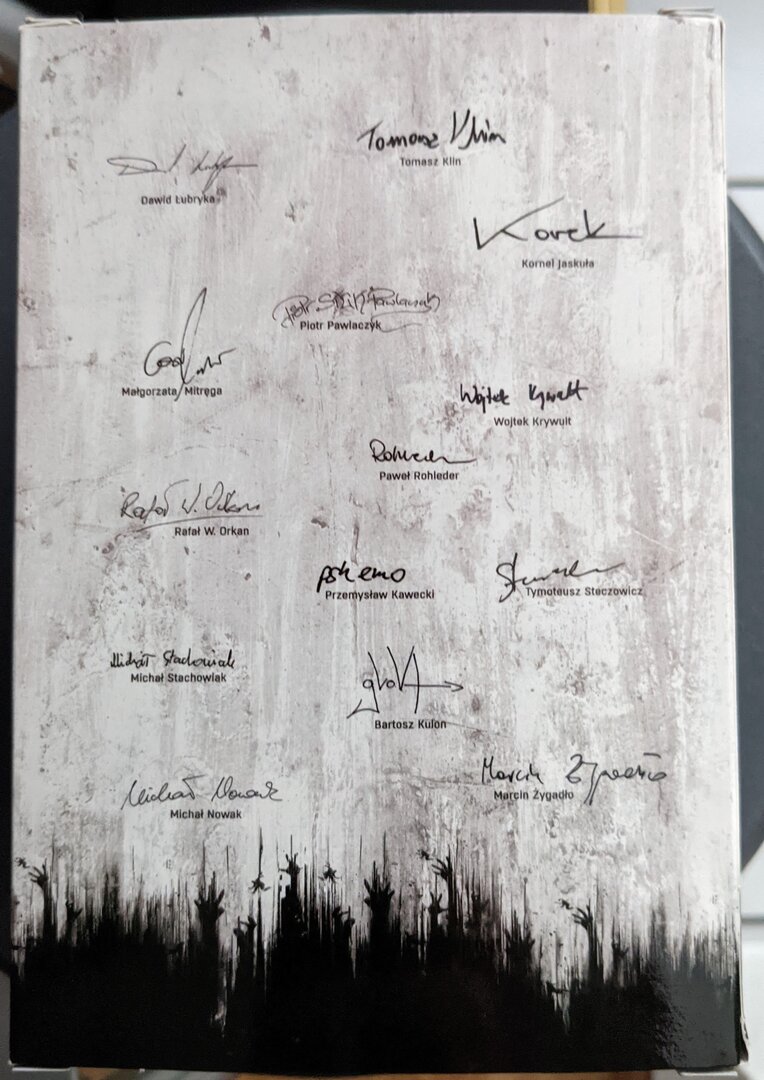 Tomasz Klin
Tomasz Klin
Dawid Łubryka
Korek
Kornel Jaskuła
Piotr Pawlaczyk
Małgorzata Mitręga
Wojtek Krywult
Wojtek Krywult
Rohleder
Paweł Rohleder
Rafał W. Orkan
Rafał W. Orkan
pshemo
Przemysław Kawecki
Tymoteusz Steczowicz
Michał Stachowiak
Michał Stachowiak
Bartosz Kulon
Marcin Żygadło
Marcin Żygadło
Michał Nowak
Michał Nowak